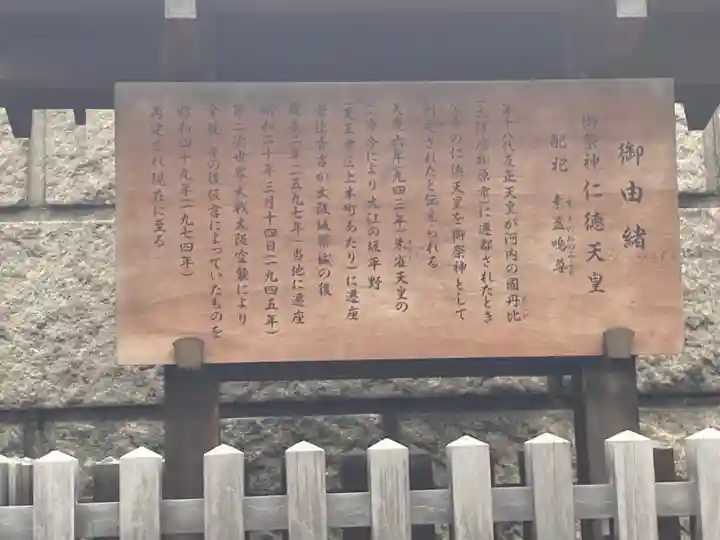 御由緒
御祭神 仁徳天皇
配祀 素盞嗚尊
第十八代反正天皇が河内の國丹比
に遷都されたとき
父帝の仁徳天皇を御祭神として
創祀されたと伝えられる
天慶六年(九四三年)朱雀天皇の
命により大江の坂平野
(天王寺区上本町あたり)に遷座
豊臣秀吉が大阪城築城の後
慶長二年(一五九七年)当地に遷座
昭和二十年三月十四日(一九四五年)
第二次世界大戦大阪空襲により
全焼 その後仮宮によっていたものを
昭和四十九年(一九七四年)
再建され現在に至る